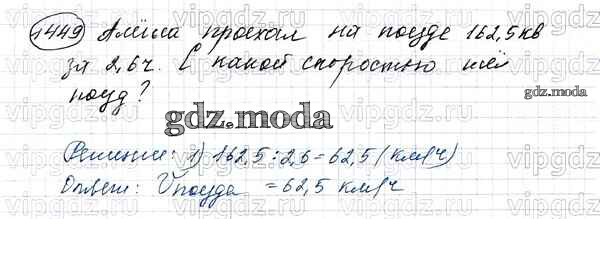 1449 Алёша проехал на поезде 162,5 кв
за 2,6ч. С какой скоростью шёл
поезд?
gdz.moda
gdz.moda
Решение: 1) 162,5 : 2,6 = 62,5 (км/ч)
Ответ: Vпоезда = 62,5 км/ч
vipgdz